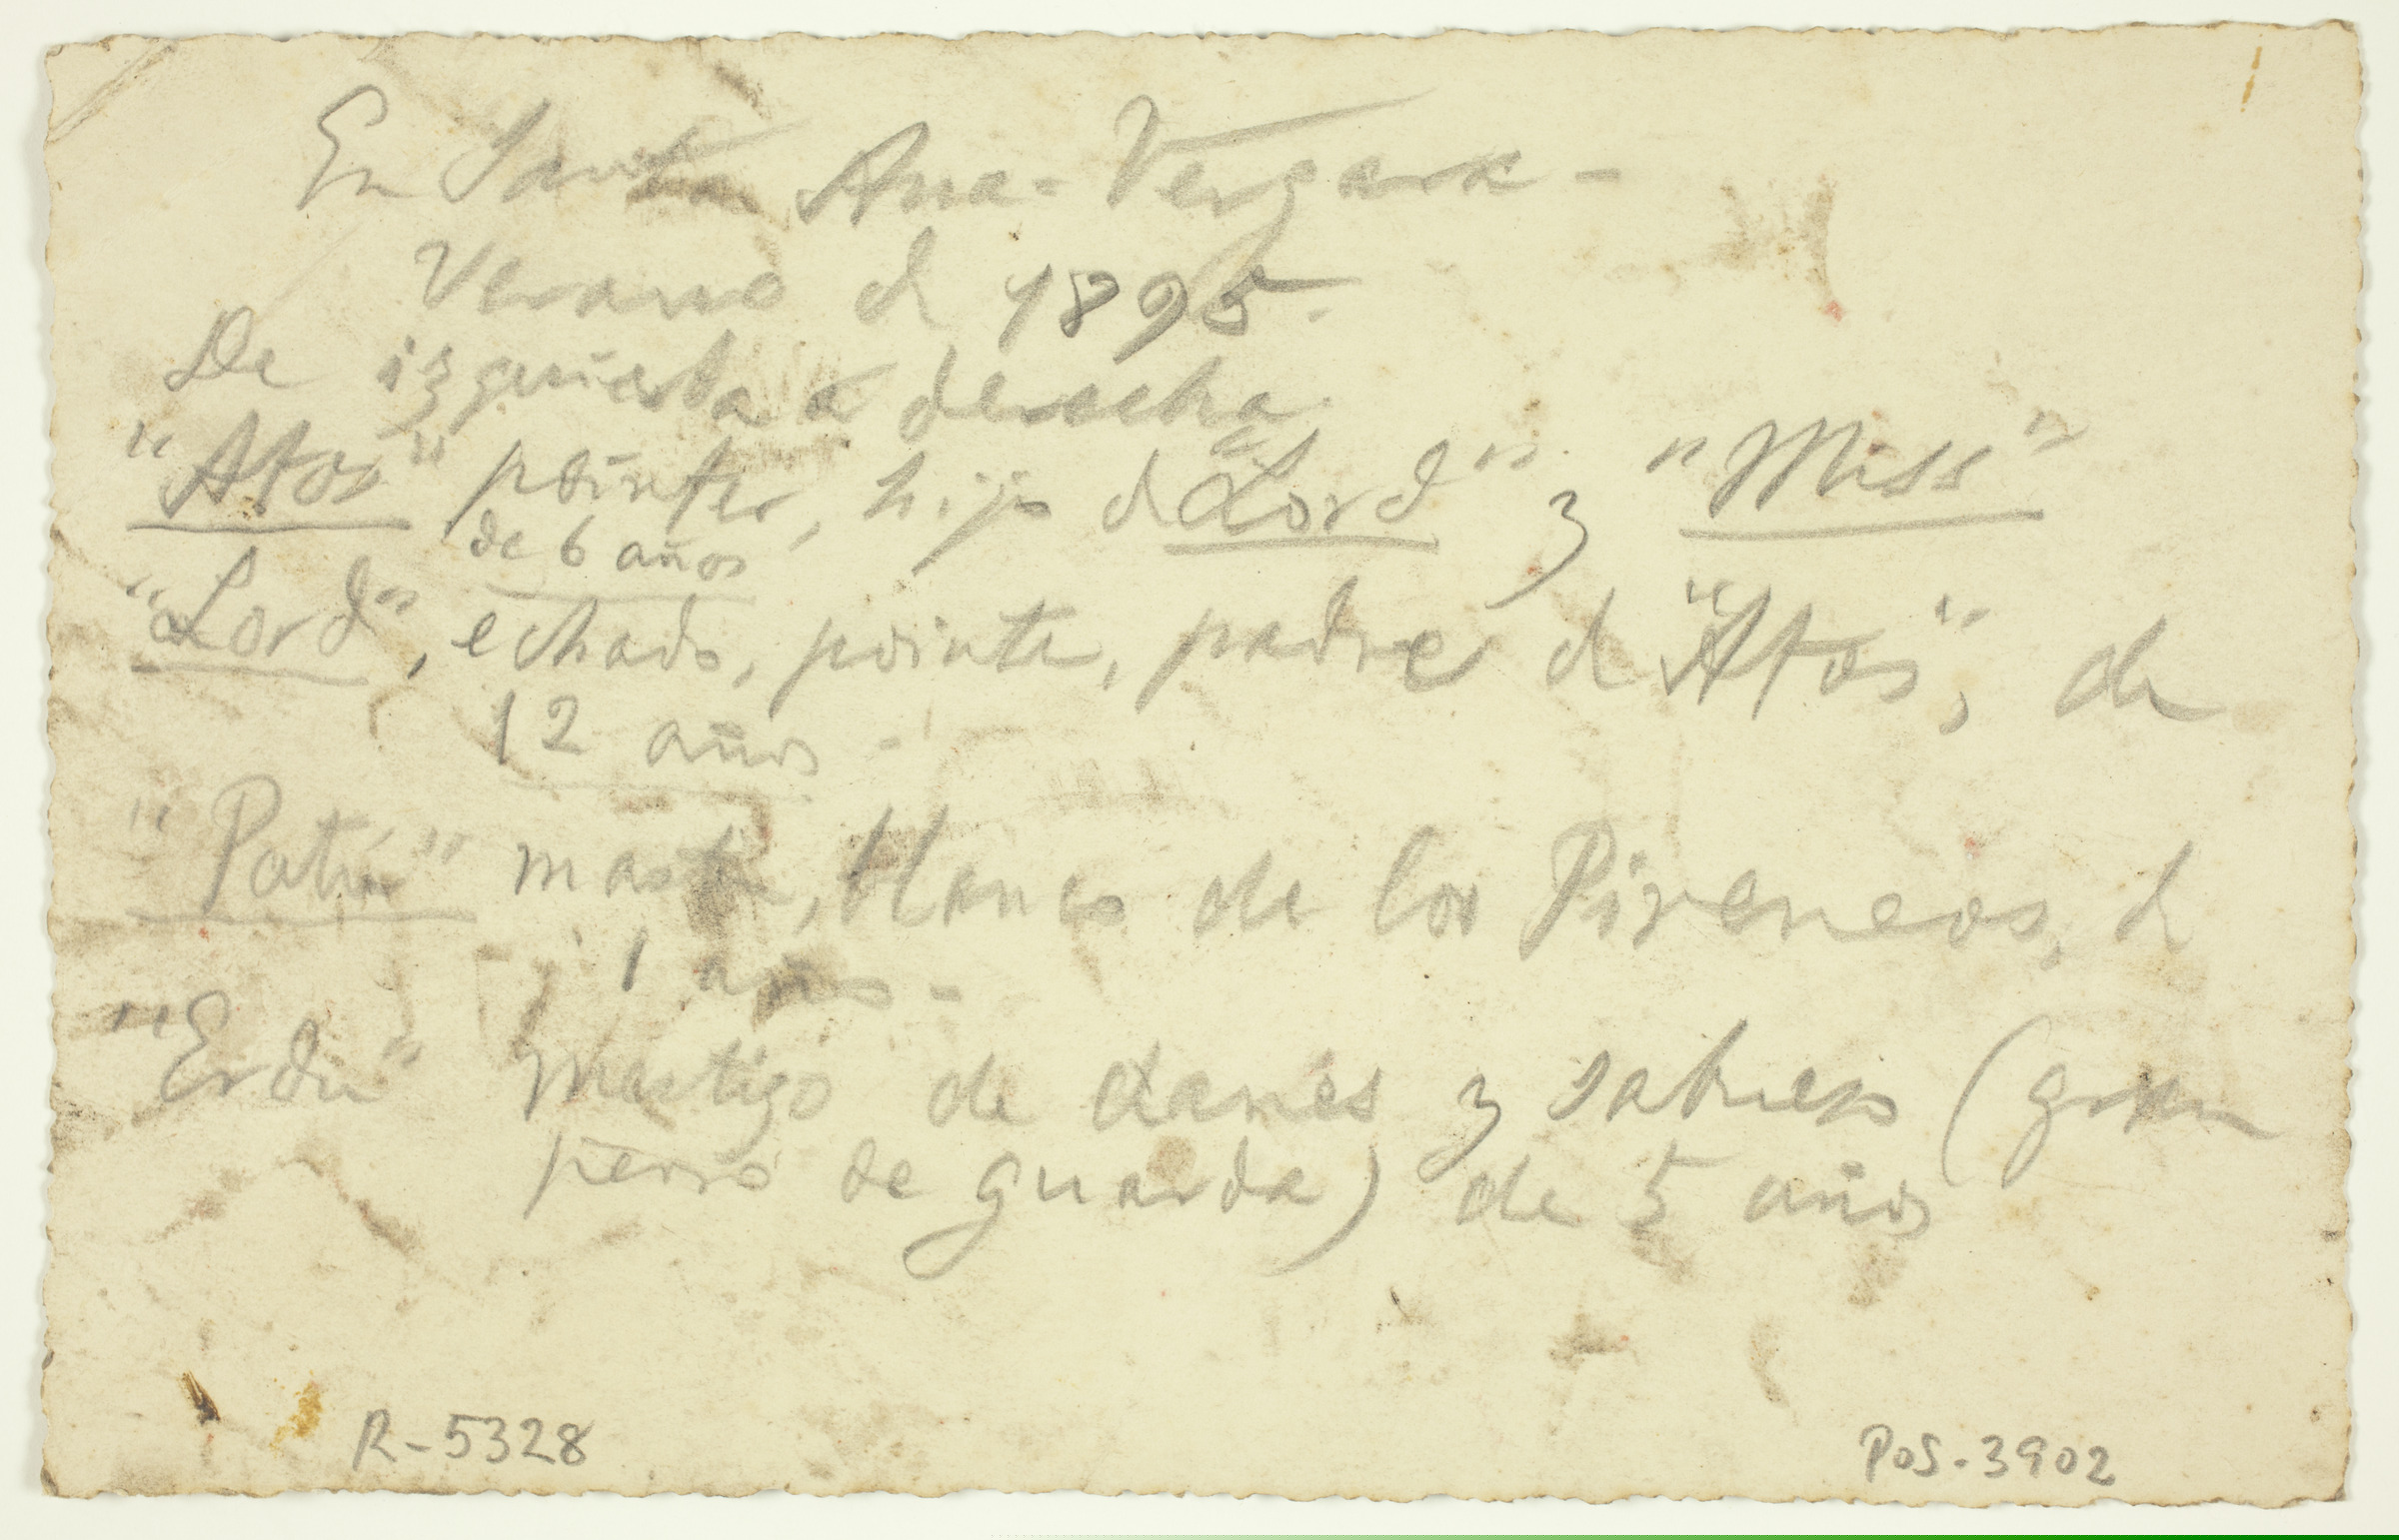 En Santa Ana - Vergara -
Verano de 1895.
De izquierda a derecha
"Atos" pointer, hijo de "Lord" y "Miss"
de 6 años
"Lord", echado, pointer, padre de "Atos", de
12 años -
"Patín" mastín, blanco de los Pireneos, de
1 años -
"Erdu" mestigo de danés y sabueso (gran
perro de guarda) de 5 años
R-5328
POS-3902